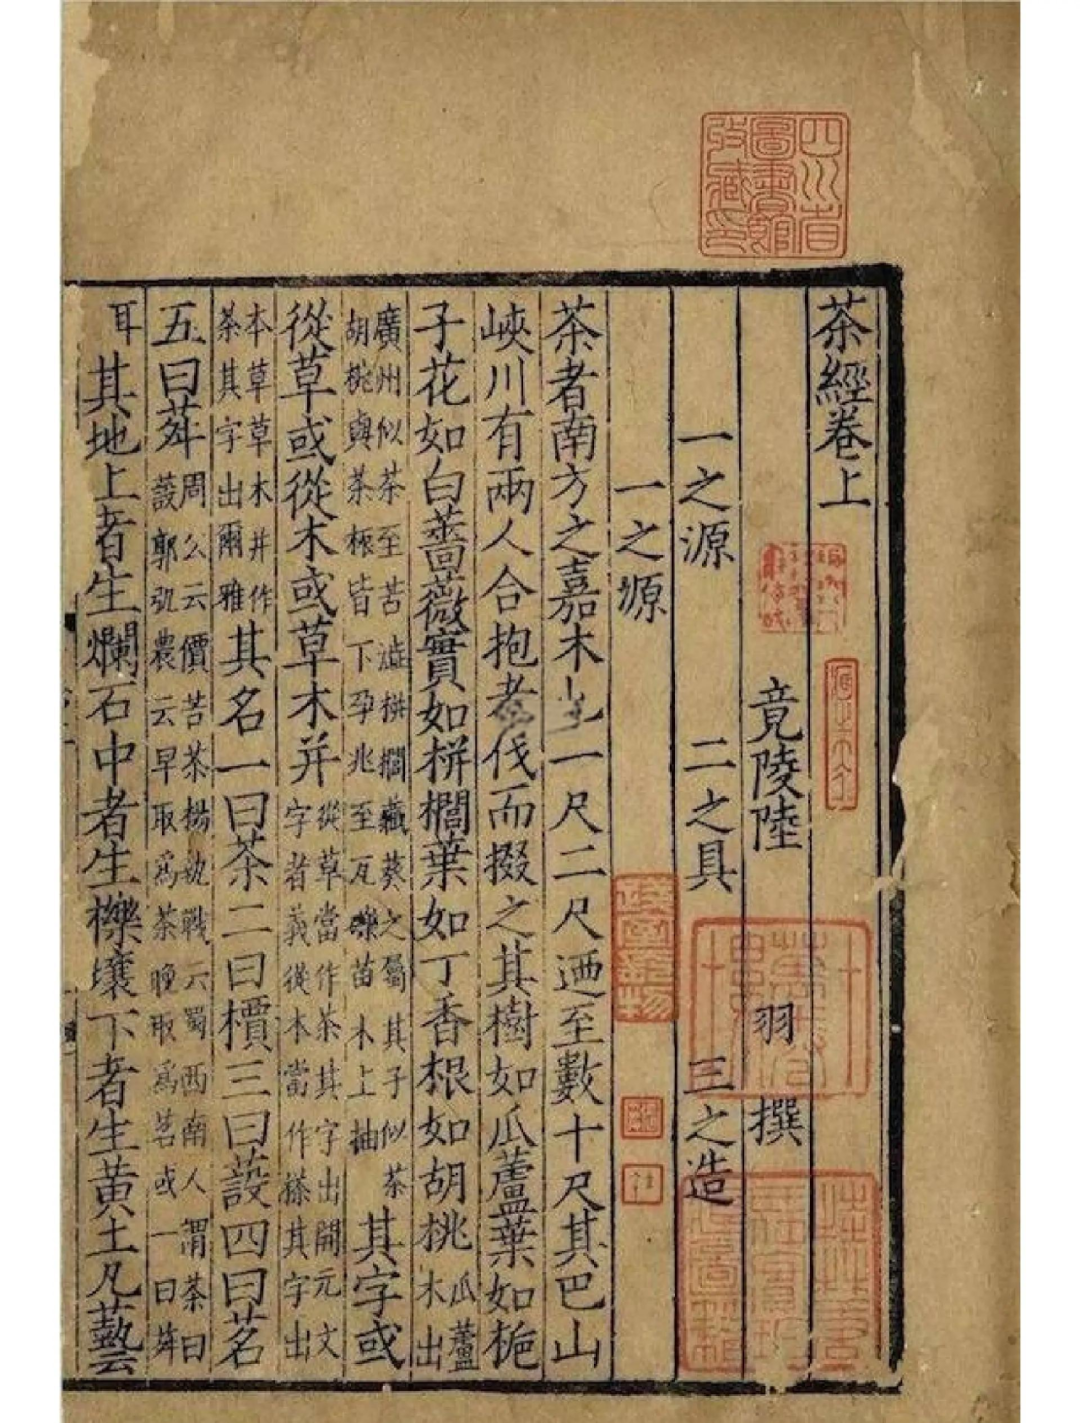 四川省圖書館收藏印
茶經卷上
竟陵陸 羽 撰
一之源 二之具 三之造
一之源
茶者南方之嘉木也一尺二尺迺至數十尺其巴山
峽川有兩人合抱者伐而掇之其樹如瓜蘆葉如梔
子花如白薔薇實如栟櫚葉如丁香根如胡桃 瓜蘆木出
廣州似茶至苦澁栟櫚藏葵之屬其子似茶胡桃與茶極皆下孕兆至瓦礫苗木上抽 其字或
從草或從木或草木并 從草當作茶其字出開元文字者義從木當作搽其字出
本草草木并作荼其字出爾雅 其名一曰茶二曰檟三曰蔎四曰茗
五曰荈 周公云價苦茶楊執戟云蜀西南人謂荼曰蔎郭弘農云早取爲茶晚取爲茗或一曰荈
耳 其地上者生爛石中者生櫟壤下者生黄土凡藝